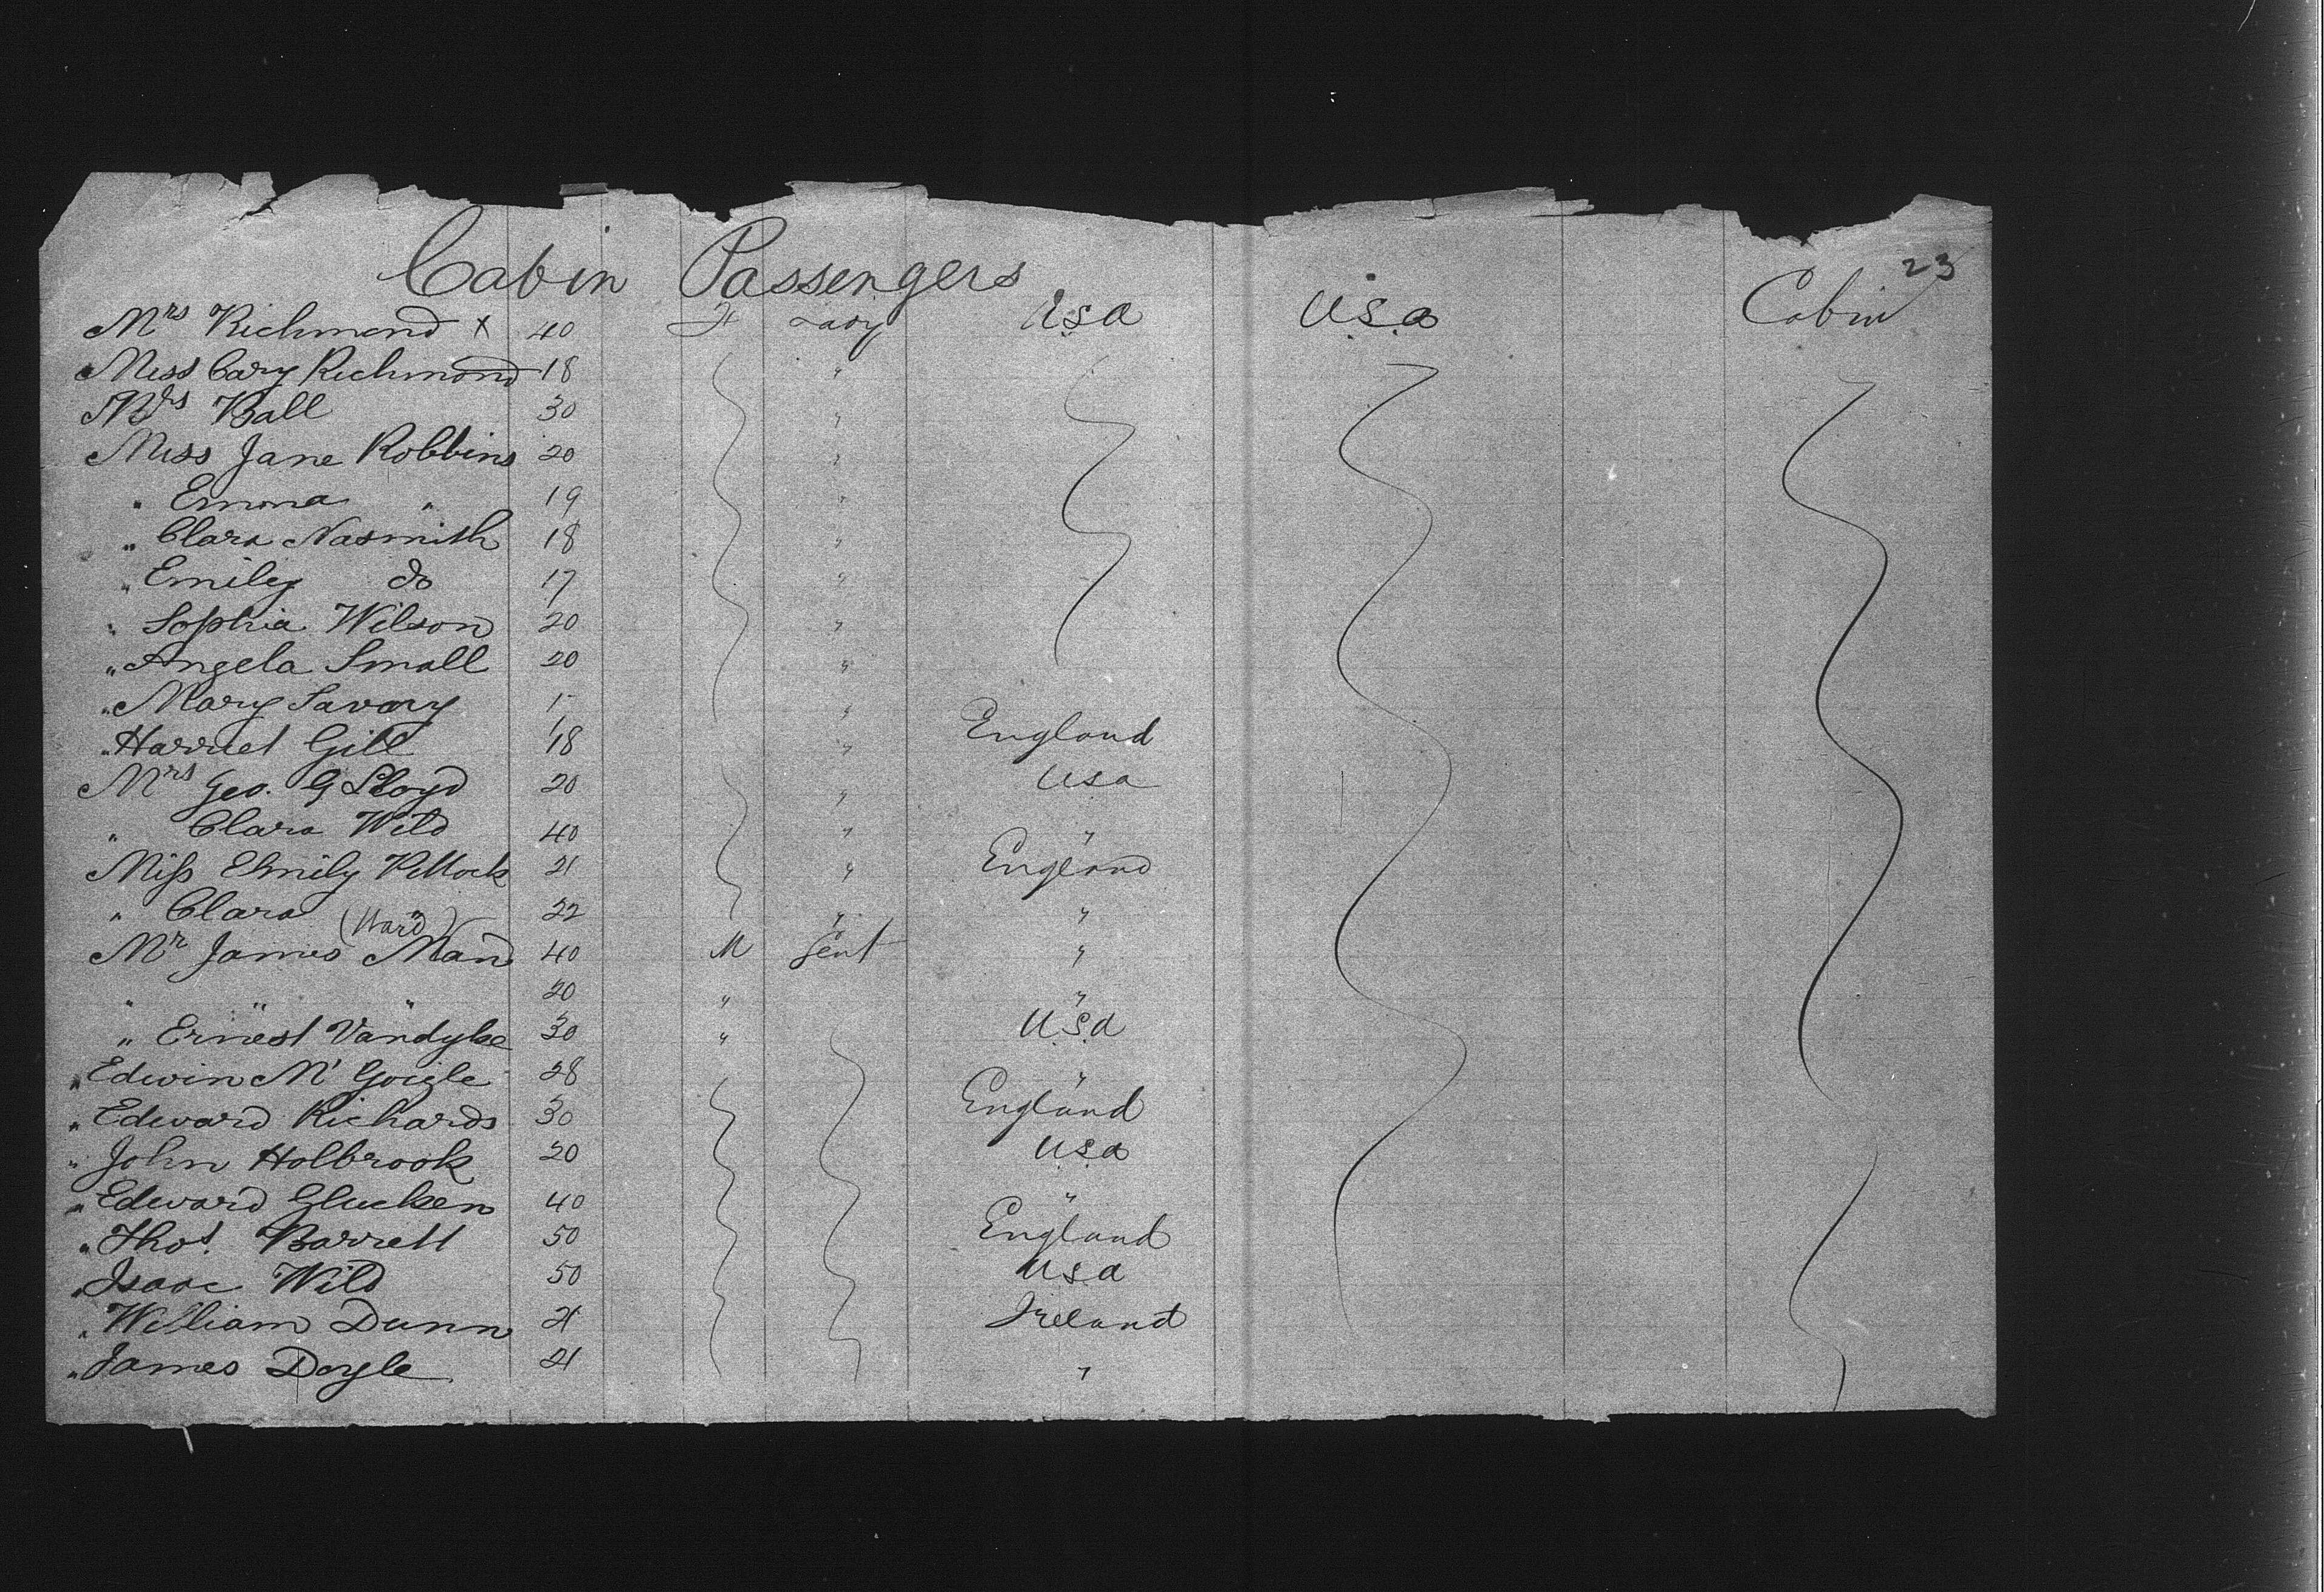 23
Cabin Passengers
Mrs Richmond x 40 F Lady U.S.a U.S.a Cabin
Miss Cary Richmond 18 "
Mrs Ball 30 "
Miss Jane Robbins 20 "
" Emma " 19 "
" Clara Nasmith 18 "
" Emiley do 17 "
" Sophia Wilson 20 "
" Angela Small 20 "
" Mary Savory "
" Harriet Gill 18 " England
Mrs Geo. G Lloyd 20 " Usa
" Clara Wild 40 " "
Miss Emily 21 " England
" Clara " 22 " "
(Ward)
Mr James Mand 40 M Gent "
" " " 20 " "
" Ernest Vandyke 30 " U.S.a
" Edwin Mc 28 "
" Edward Richards 30 England
" John Holbrook 20 U.S.a
" Edward Glucken 40 "
" Thos. Barrett 50 England
" Isaac Wild 50 U.S.a
" William Dunn 21 Ireland
" James Doyle 21 "